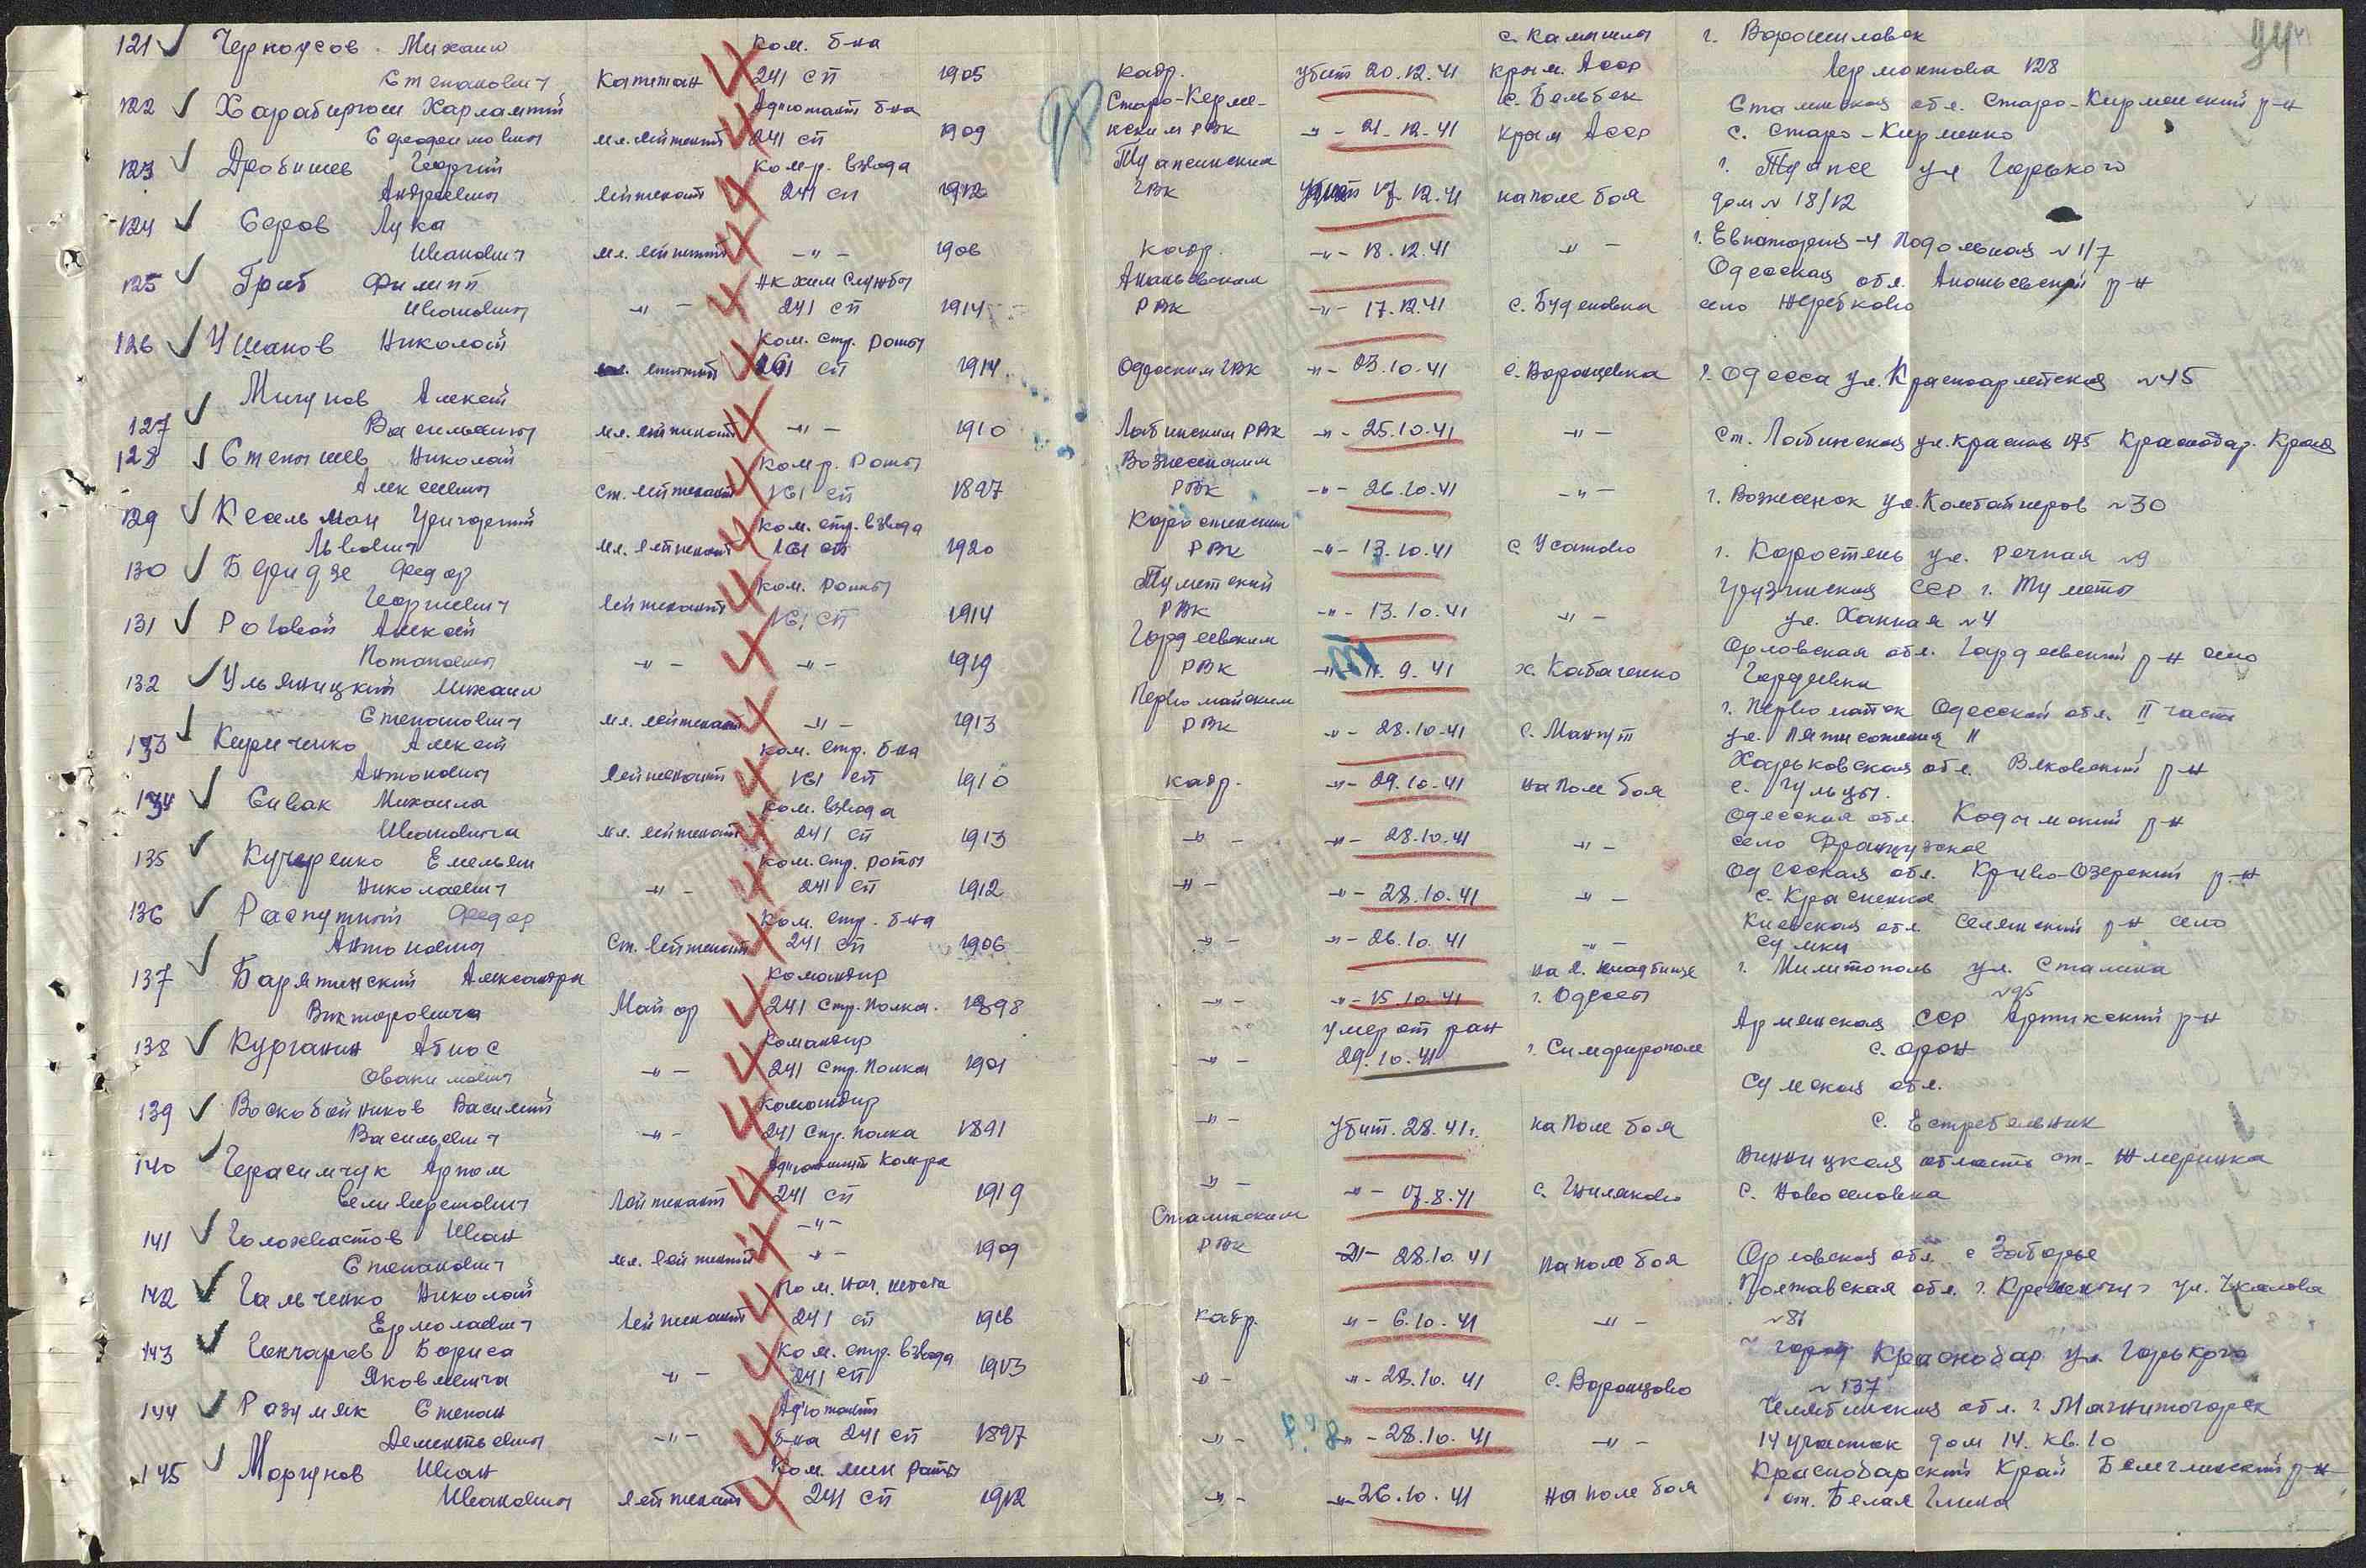 121 Черноусов Михаил ком. б-на с. Камышлы г. Ворошиловск
Степанович Капитан 241 сп 1905 кадр. убит 20.12.41 Крым. Асср Лермонтова 128
122 Харабирюш Харлампий Адъютант б-на Старо-Керме- с. Бельбек Сталинская обл. Старо-Керменский р-н
мл. лейтенант 241 сп 1909 нским РВК -"- 21.12.41 Крым Асср с. Старо-Керменко
123 Дробишев Георгий ком-р. взвода Туапсинским г. Туапсе ул Горького
Андреевич лейтенант 241 сп 1912 ГВК убит 17.12.41 на поле боя дом № 18/12
124 Серов Лука
Иванович мл. лейтенант -"- 1906 кадр. -"- 18.12.41 -"- г. Евпатория-4 Подольская №1/7
125 Граб Филипп нк хим службы Ананьевским Одесская обл. Ананьевский р-н
Иванович -"- 241 сп 1914 РВК -"- 17.12.41 с. Буденовка село Жеребково
126 Ушаков Николай ком. стр. роты
мл. лейтенант 161 сп 1914 Одесским ГВК -"- 23.10.41 с. Воронцовка г. Одесса ул. Красноармейская №45
Мигунов Алексей
127 Васильевич мл. лейтенант -"- 1910 Лабинским РВК -"- 25.10.41 -"- ст. Лабинская ул. Красная 175 Краснодар. Край
128 Стенышев Николай ком-р. роты Вознесенским
Алексеевич ст. лейтенант 161 сп 1897 РВК -"- 26.10.41 -"- г. Вознесенск ул. Комбайнеров №30
129 Кесельман Григорий ком. стр. взвода Коростенским
Львович мл. лейтенант 161 сп 1920 РВК -"- 13.10.41 с Усатово г. Коростень ул. Речная №9
130 Беридзе Федор ком. роты Грузинская ССР
Георгиевич лейтенант 161 сп 1914 РВК -"- 13.10.41 -"- ул. Ханная №4
131 Роговой Алексей Гордеевским Орловская обл. Гордеевский р-н село
Потапович -"- -"- 1919 РВК -"- 11.9.41 х. Кабаченко Гордеевка
132 Ульяницкий Михаил Первомайским г. Первомайск Одесской обл. II часть
Степанович мл. лейтенант -"- 1913 РВК -"- 28.10.41 с. Мангуш ул. Пятисотенная 11
133 Кириченко Алексей ком. стр. б-на Харьковская обл. Валковский р-н
Антонович лейтенант 161 сп 1910 кадр. -"- 29.10.41 на поле боя с. Гульцы.
134 Сивак Михаила ком. взвода Одесская обл. Кодымский р-н
Ивановича мл. лейтенант 241 сп 1913 -"- -"- 28.10.41 -"- село Французское
135 Кучеренко Емельян ком. стр. роты Одесская обл. Криво-Озерский р-н
Николаевич -"- 241 сп 1912 -"- -"- 28.10.41 -"- с. Красненкое
136 Распутний Федор ком. стр. б-на Киевская обл. р-н село
Антонович ст. лейтенант 241 сп 1906 -"- -"- 26.10.41 -"- Сумки
137 Барятинский Александра Командир на 2. кладбище г. Милитополь ул. Сталина
Викторовича Майор 241 стр. полка. 1898 -"- -"- 15.10.41 г. Одессы №95
138 Курганин Абнос Командир умер от ран Армянская ССР Артикский р-н
-"- 241 стр. полка 1901 -"- 29.10.41 г. Симферополе с. Орон
139 Воскобойников Василий Командир Сумская обл.
Васильевич -"- 241 стр. полка 1891 -"- убит. 28.41г. на поле боя с. Естребельник
140 Герасимчук Артом Адъютант Ком-ра Винницкая область ст. Жмеринка
Селиверстович лейтенант 241 сп 1919 -"- -"- 17.8.41 с. Гниляково с. Новоселовка
141 Голохвастов Иван -"- Сталинским
Степанович мл. лейтенант -"- 1909 РВК -"- 28.10.41 на поле боя Орловская обл. с Заборье
142 Гальченко Николай Пом. нач. штаба Полтавская обл. г. Кременчуг ул. Чкалова
Ермолаевич лейтенант 241 сп 1916 кадр. -"- 6.10.41 -"- №81
143 Гончаров Бориса ком. стр. взвода город Краснодар ул. Горького
Яковлевича -"- 241 сп 1913 -"- -"- 28.10.41 с. Воронцово №137
144 Разумяк Степан Адъютант Челябинская обл. г. Магнитогорск
Дементьевич -"- б-на 241 сп 1897 -"- -"- 28.10.41 -"- 14 участок дом 14. кв. 10
145 Моргунов Иван Ком. мин роты Краснодарский Край Белоглинский р-н
Иванович лейтенант 241 сп 1912 -"- -"- 26.10.41 на поле боя ст. Белая Глина